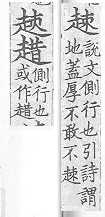 趚
說文側行也引詩謂
地蓋厚不敢不趚
趚趞
側行也
或作趞